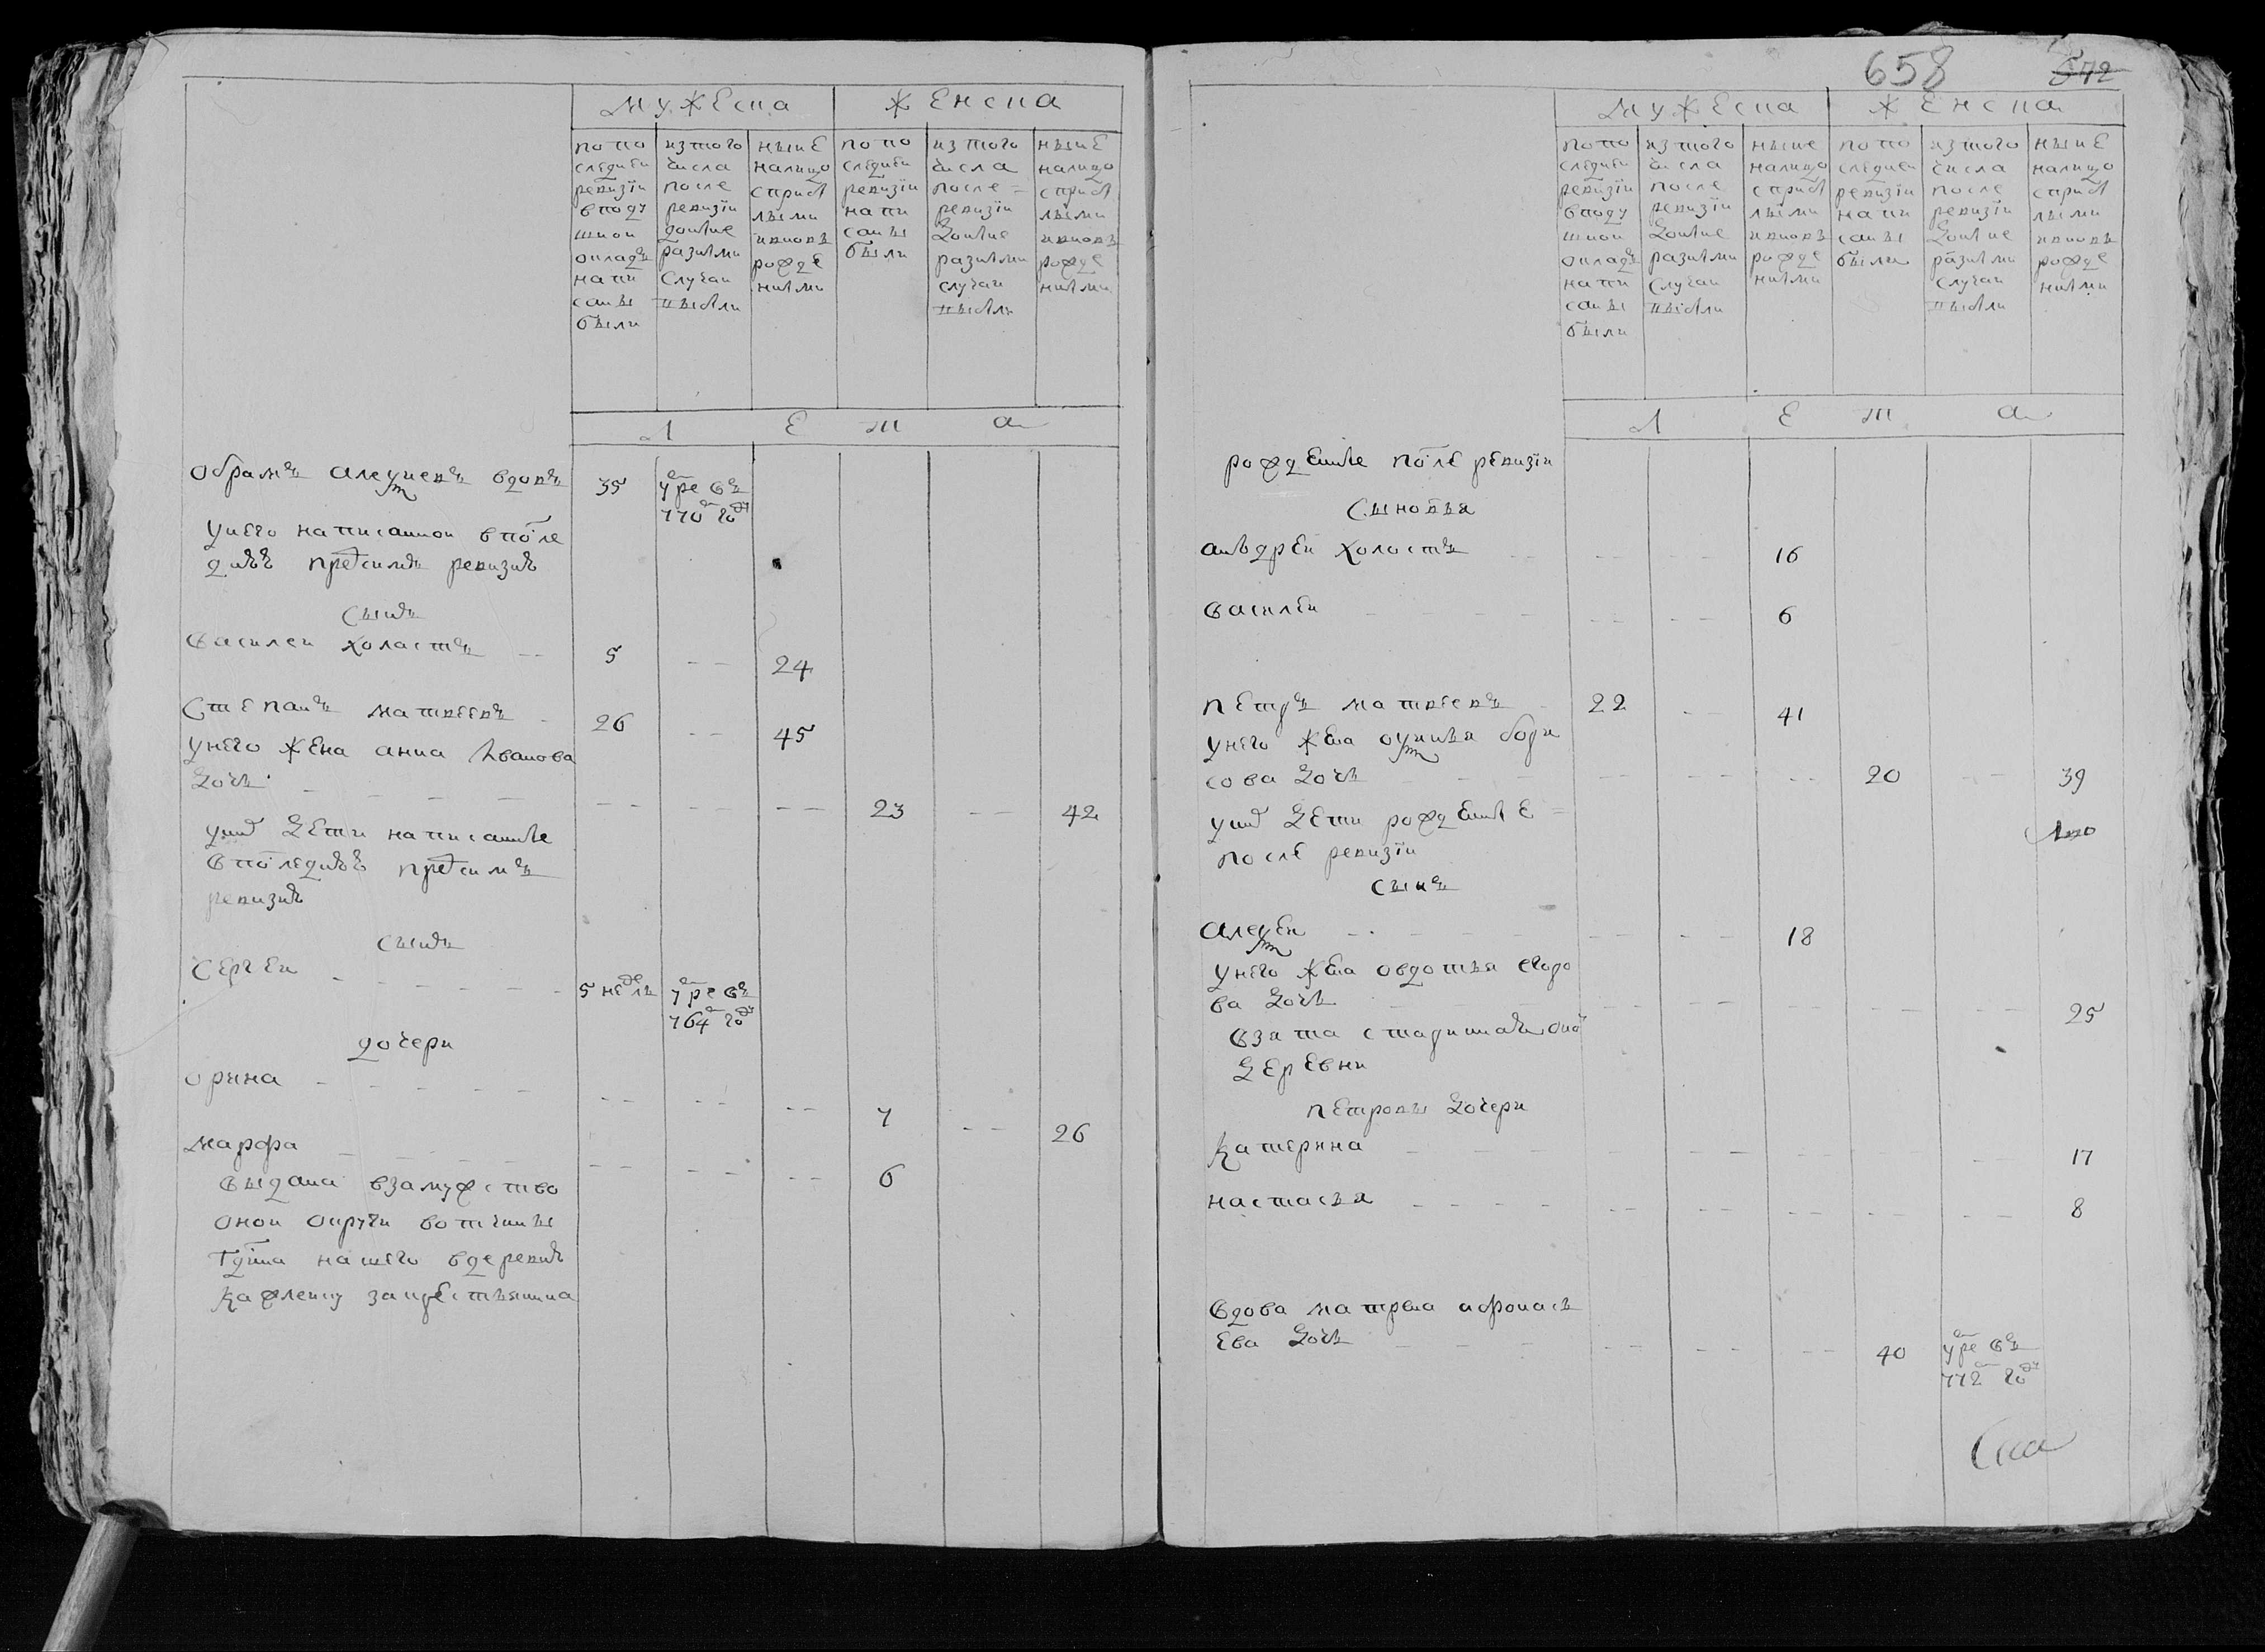 мужеска
женска
по по
следнеи
ревизіи
в поду
шнои
окладъ
напи
саны
были
из того
числа
после
ревизіи
до ныне
разными
случаи
выбыли
ныне
на лицо
с прибы
лыми
и вновь
рожде
ными
по по
следнеи
ревизіи
напи
саны
были
из того
числа
после =
ревизіи
до ныне
разными
случаи
выбыли
ныне
на лицо
с прибы
лыми
и вновь
рожде
ными
л е т а
Обрамъ алексеевъ вдовъ 35 умре въ
770 году
у него написанной в после
днеи пред симъ ревизіи
сынъ
василеи холастъ -- 5 -- 24
Степанъ матвеевъ - 26 -- 45
у него жена анна Ивановa
дочь - - - - -- -- -- 23 -- 42
у них дети написанные
в последнеи пред симъ
ревизіи
сынъ
Сергеи - - - - - - 5 недель умре въ
764 году
дочери
орина - - - - - -- -- 7 -- 26
марфа - - - - -- -- -- 6
выдана в замужство
онои округи вотчины
гдна нашего в деревню
кафлеину за крестьянина
658 572
мужеска
женска
по по
следнеи
ревизіи
в поду
шнои
окладъ
напи
саны
были
из того
числа
после
ревизіи
до ныне
разными
случаи
выбыли
ныне
на лицо
с прибы
лыми
и вновь
рожде
ными
по по
следнеи
ревизіи
напи
саны
были
из того
числа
после
ревизіи
до ныне
разными
случаи
выбыли
ныне
на лицо
с прибы
лыми
и вновь
рожде
ними
л е т а
рожденные после ревизіи
Сыновья
андреи холостъ -- -- -- 16
василеи - - - - -- -- 6
петръ матвеевъ - 22 - 41
у него жена оксинья бори
сова дочь - - - -- -- -- 20 39
у них дети рожденные =
после ревизіи
сынъ
алексеи - - - - - -- -- 18
у него жена овдотья егоро
ва дочь - - - -- -- -- -- -- 25
взята с онои
деревни
петровы дочери
катерина - - - - -- -- - 17
настасья - - - - -- -- -- -- -- 8
вдова матрена афонась
ева дочь - - - -- -- -- 40 умре въ
772 году